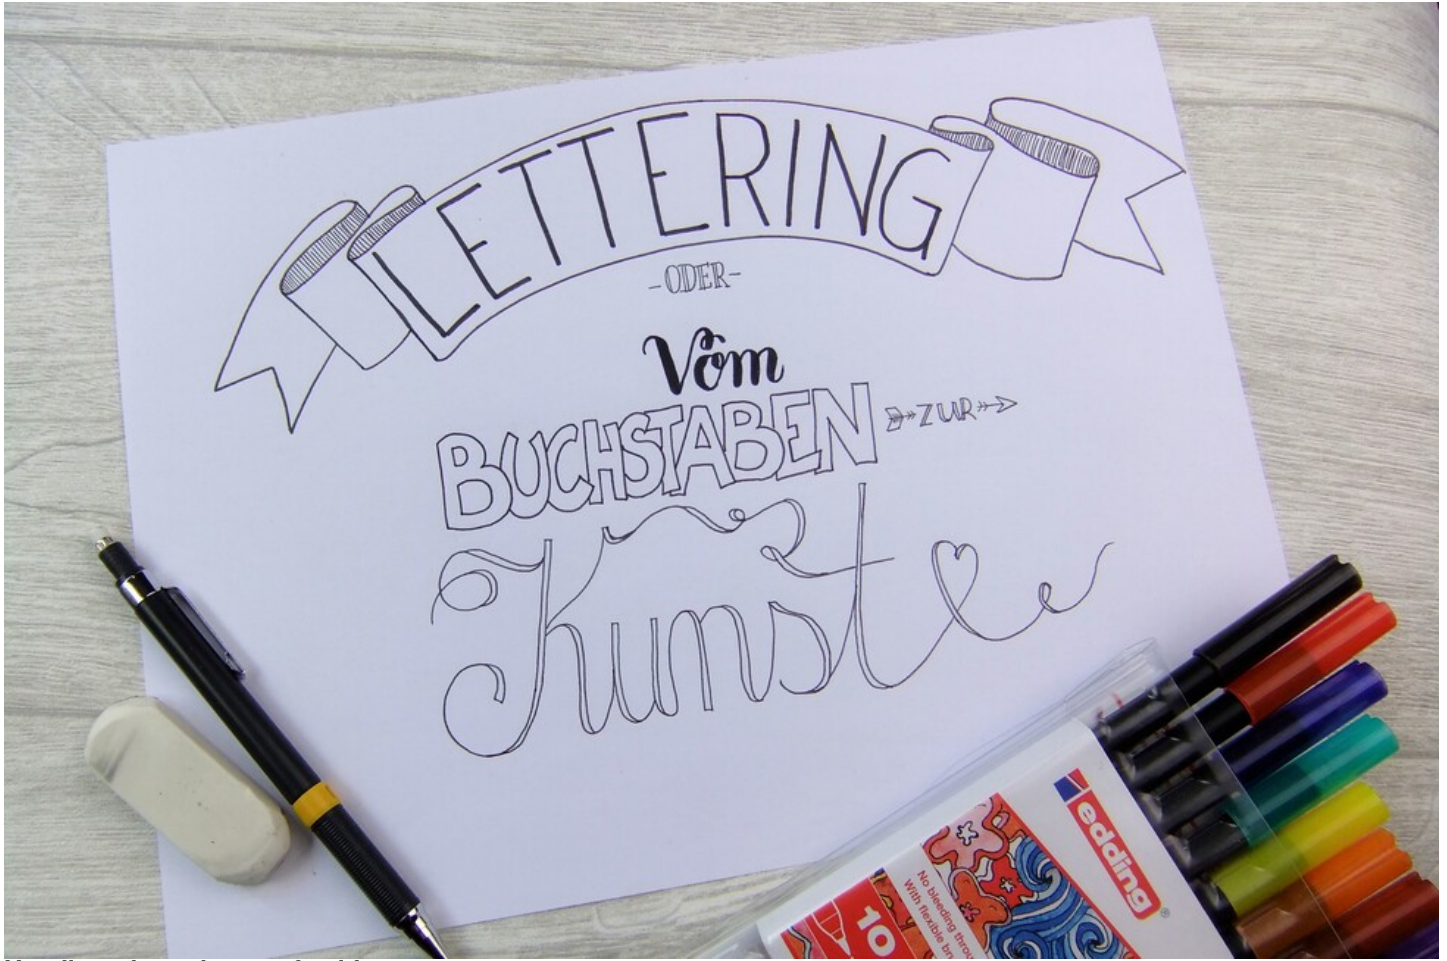 LETTERING
-ODER-
Vom
BUCHSTABEN ZUR
Kunst
edding®
10
No bleeding through
With flexible